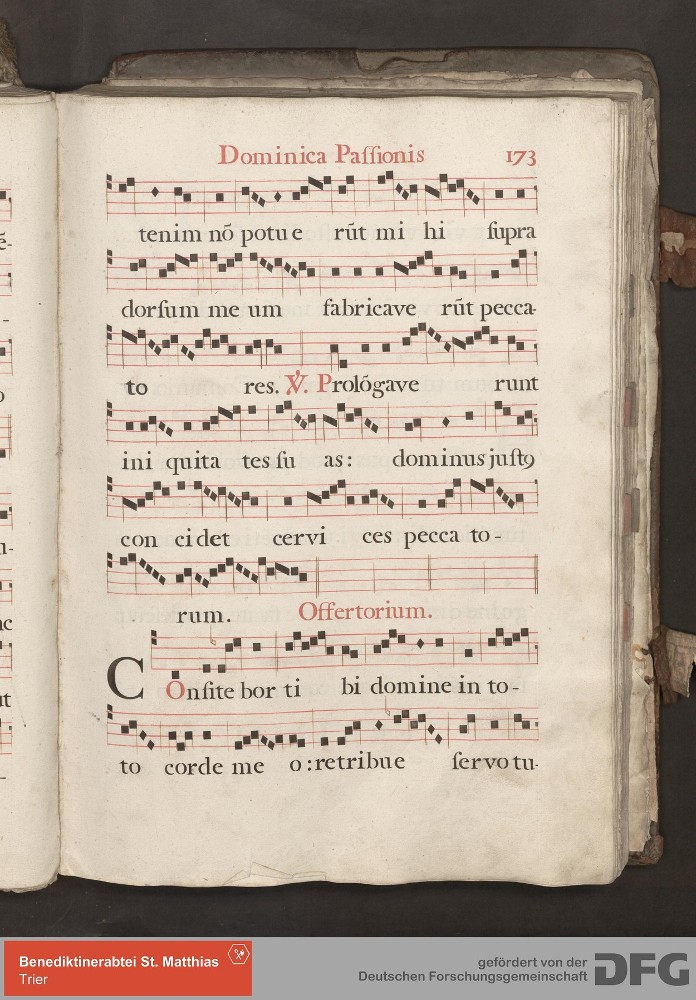 Dominica Paſſionis 173
tenim nõ potu e rũt mi hi ſupra
dorſum me um fabricave rũt pecca-
to res. ℣. Prolõgave runt
ini quita tes ſu as: dominus juſtꝰ
con ci det cervi ces pecca to-
rum. Offertorium.
COnfite bor ti bi domine in to-
to corde me o: retribue ſervo tu-
Benediktinerabtei St. Matthias
Trier
gefördert von der
Deutschen Forschungsgemeinschaft
DFG